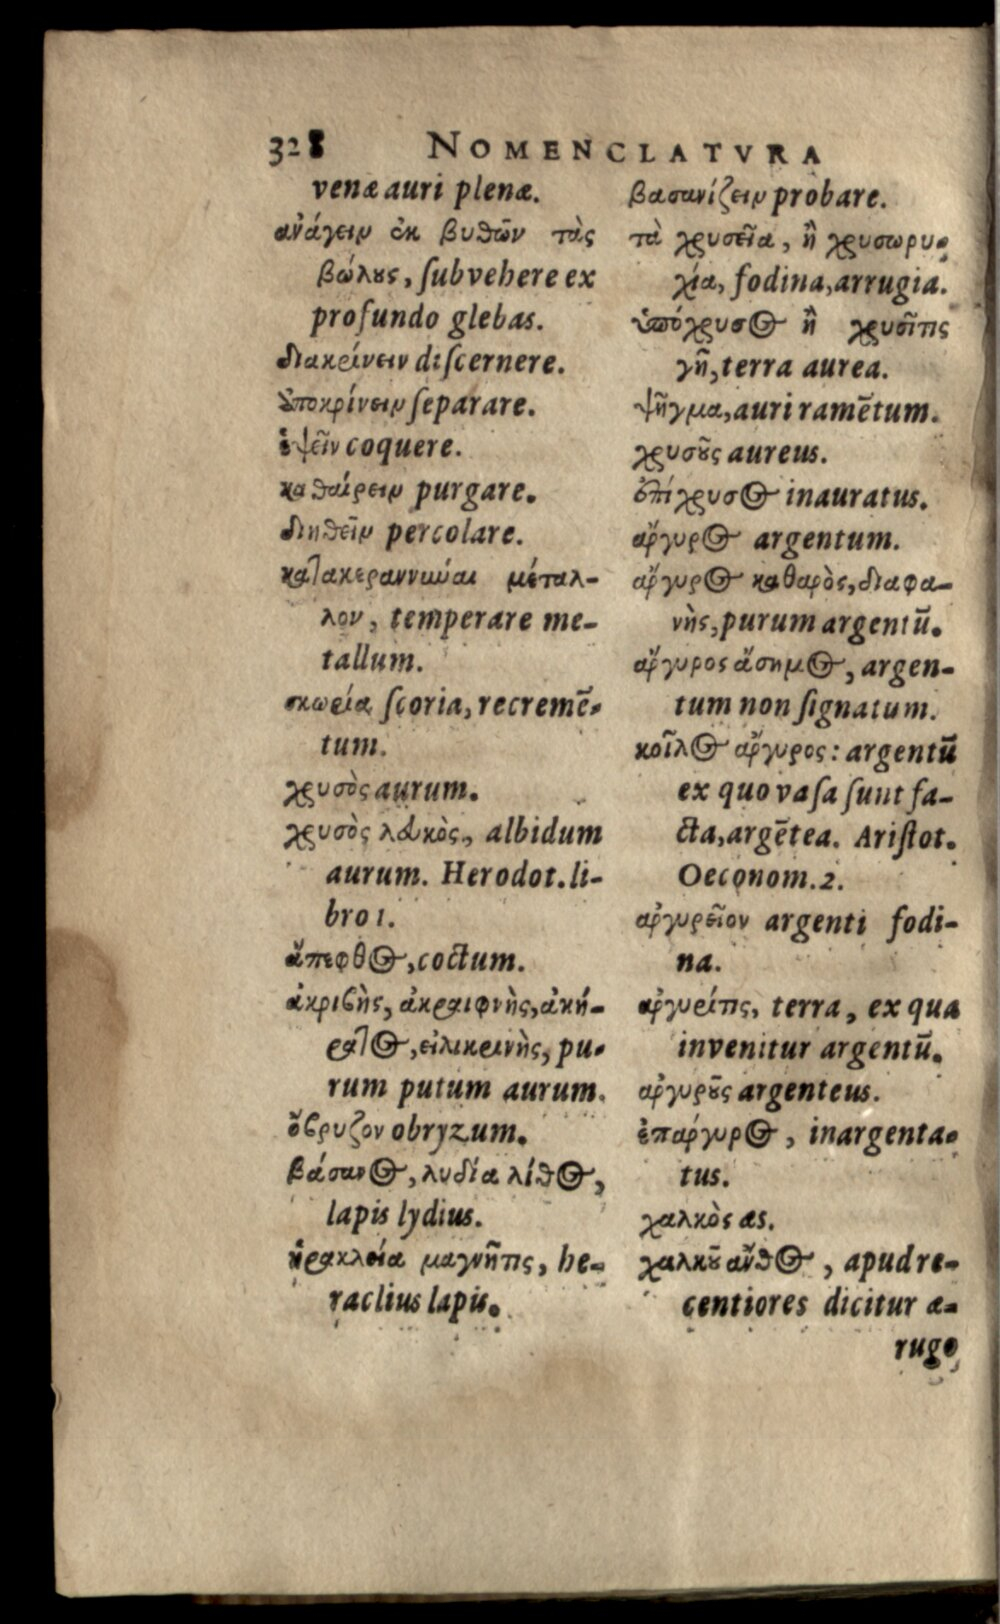 328 NOMENCLATVRA
venæ auri plenæ.
ἀνάγειν ἐκ βυθῶν τὰς
βώλους, ſubvehere ex
profundo glebas.
διακρίνειν diſcernere.
ὑποκρίνειν ſeparare.
ἑψεῖν coquere.
καθαίρειν purgare.
διηθεῖν percolare.
κατακεραννύναι μέταλ-
λον, temperare me-
tallum.
σκωρία ſcoria, recremē-
tum.
χρυσὸς aurum.
χρυσὸς λευκὸς, albidum
aurum. Herodot. li-
bro 1.
ἄπεφθος, coctum.
ἀκριβὴς, ἀκραιφνὴς, ἀκή-
ρατος, εἰλικρινὴς, pu-
rum putum aurum.
ὄβρυζον obryzum.
βάσανος, λυδία λίθος,
lapis lydius.
ἡρακλεία μαγνῆτις, he-
raclius lapis.
βασανίζειν probare.
τὰ χρυσεῖα, ἢ χρυσωρυ-
χία, fodina, arrugia.
ὑπόχρυσος ἢ χρυσῖτις
γῆ, terra aurea.
ψῆγμα, auri ramētum.
χρυσοῦς aureus.
ἐπίχρυσος inauratus.
ἄργυρος argentum.
ἄργυρος καθαρὸς, διαφα-
νὴς, purum argentū.
ἄργυρος ἄσημος, argen-
tum non ſignatum.
κοῖλος ἄργυρος: argentū
ex quo vaſa ſunt fa-
cta, argētea. Ariſtot.
Oeconom. 2.
ἀργυρεῖον argenti fodi-
na.
ἀργυρίτις, terra, ex qua
invenitur argentū.
ἀργυροῦς argenteus.
ἐπάργυρος, inargenta-
tus.
χαλκὸς æs.
χαλκοῦ ἄνθος, apud re-
centiores dicitur æ-
rugo